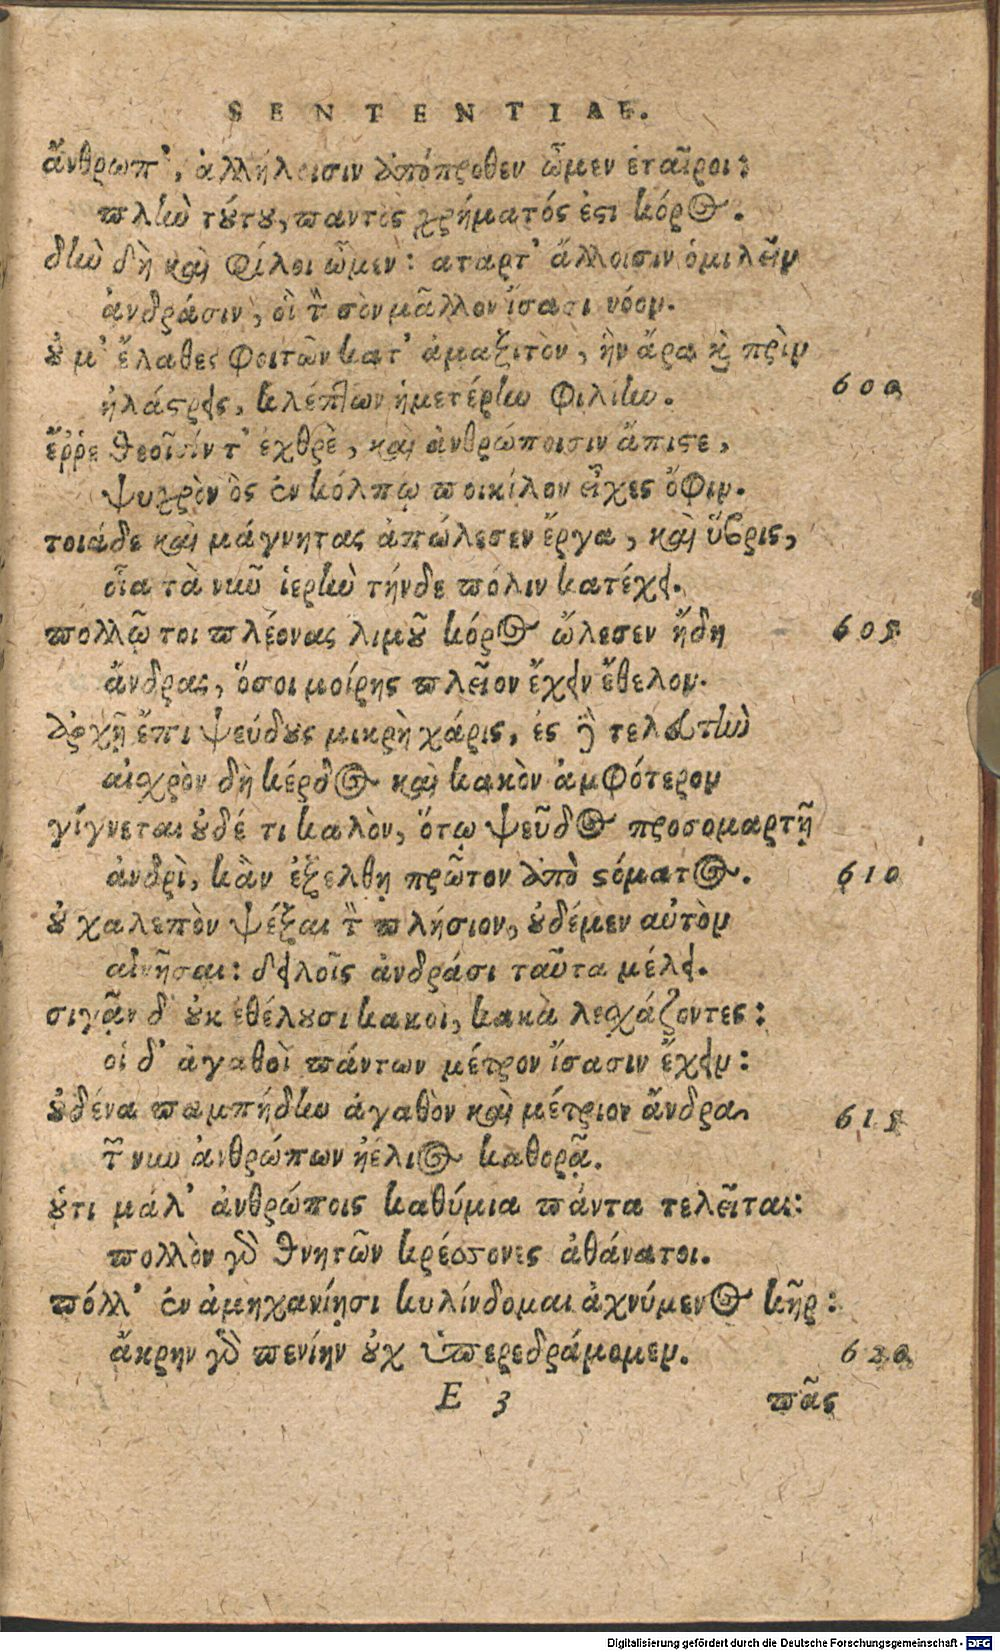 SENTENTIAE.
ἄνθρωπ', ἀλλήλοισιν ἀπόπροθεν ὦμεν ἑταῖροι:
πλὴν τούτου, παντὸς χρήματός ἐστι κόρος.
δὴν δὴ καὶ φίλοι ὦμεν: αταρτ' ἄλλοισιν ὁμιλεῖν
ἀνδράσιν, οἳ τὸν σὸν μᾶλλον ἴσασι νόον.
οὔ μ' ἔλαθες φοιτῶν κατ' ἁμαξιτὸν, ἣν ἄρα καὶ πρὶν
ἠλάστρεις, κλέπτων ἡμετέρην φιλίην. 600
ἔῤῥε θεοῖσίν τ' ἐχθρὲ, καὶ ἀνθρώποισιν ἄπιστε,
ψυχρὸν ὃς ἐν κόλπῳ ποικίλον εἶχες ὄφιν.
τοιάδε καὶ μάγνητας ἀπώλεσεν ἔργα, καὶ ὕβρις,
οἷα τὰ νῦν ἱερὴν τήνδε πόλιν κατέχει.
πολλῷ τοι πλέονας λιμοῦ κόρος ὤλεσεν ἤδη 605
ἄνδρας, ὅσοι μοίρης πλεῖον ἔχειν ἔθελον.
ἀρχῇ ἔπι ψεύδους μικρὴ χάρις, ἐς δὲ τελευτὴν
αἰσχρὸν δὴ κέρδος καὶ κακὸν ἀμφότερον
γίγνεται οὐδέ τι καλὸν, ὅτῳ ψεῦδος προσομαρτῇ
ἀνδρὶ, κἂν ἐξελθῃ πρῶτον ἀπὸ στόματος. 610
οὐ χαλεπὸν ψέξαι τὸν πλήσιον, οὐδέμεν αὐτὸν
αἰνῆσαι: δειλοῖς ἀνδράσι ταῦτα μέλει.
σιγᾷν δ' οὐκ ἐθέλουσι κακοὶ, κακὰ λεσχάζοντες:
οἱ δ' ἀγαθοὶ πάντων μέτρον ἴσασιν ἔχειν:
οὐδένα παμπήδην ἀγαθὸν καὶ μέτριον ἄνδρα 615
τῶν νῦν ἀνθρώπων ἠέλιος καθορᾷ.
οὔτι μάλ' ἀνθρώποις καθύμια πάντα τελεῖται:
πολλὸν γὰρ θνητῶν κρέσσονες ἀθάνατοι.
πόλλ' ἐν ἀμηχανίῃσι κυλίνδομαι ἀχνύμενος κῆρ:
ἄκρην γὰρ πενίην οὐχ ὑπερεδράμομεν. 620
E 3 πᾶς
Digitalisierung gefördert durch die Deutsche Forschungsgemeinschaft - DFG